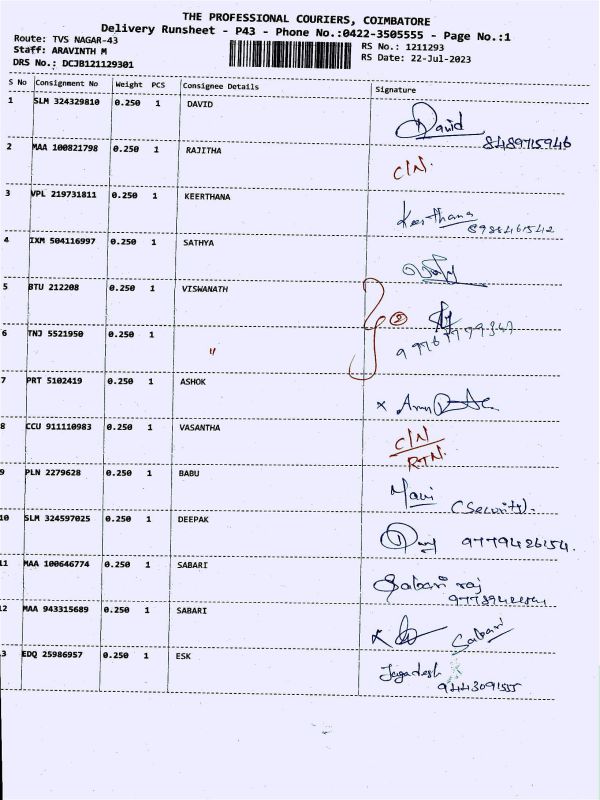 THE PROFESSIONAL COURIERS, COIMBATORE
Delivery Runsheet - P43 - Phone No.:0422-3505555 - Page No.:1
Route: TVS NAGAR-43
RS No.: 1211293
Staff: ARAVINTH M
RS Date: 22-Jul-2023
DRS No.: DCJB121129301
S No Consignment No Weight PCS Consignee Details Signature
1 SLM 324329810 0.250 1 DAVID David
8489715946
2 MAA 100821798 0.250 1 RAJITHA C/N.
3 VPL 219731811 0.250 1 KEERTHANA Keerthana
4 IXM 504116997 0.250 1 SATHYA
5 BTU 212208 0.250 1 VISWANATH
2
6 TNJ 5521950 0.250 1 "
7 PRT 5102419 0.250 1 ASHOK x
8 CCU 911110983 0.250 1 VASANTHA C/N
RTN.
9 PLN 2279628 0.250 1 BABU Mani
(Security).
10 SLM 324597025 0.250 1 DEEPAK 9779426154.
11 MAA 100646774 0.250 1 SABARI Sabari raj
12 MAA 943315689 0.250 1 SABARI x Sabari
3 EDQ 25986957 0.250 1 ESK Jagadesh
9443091555